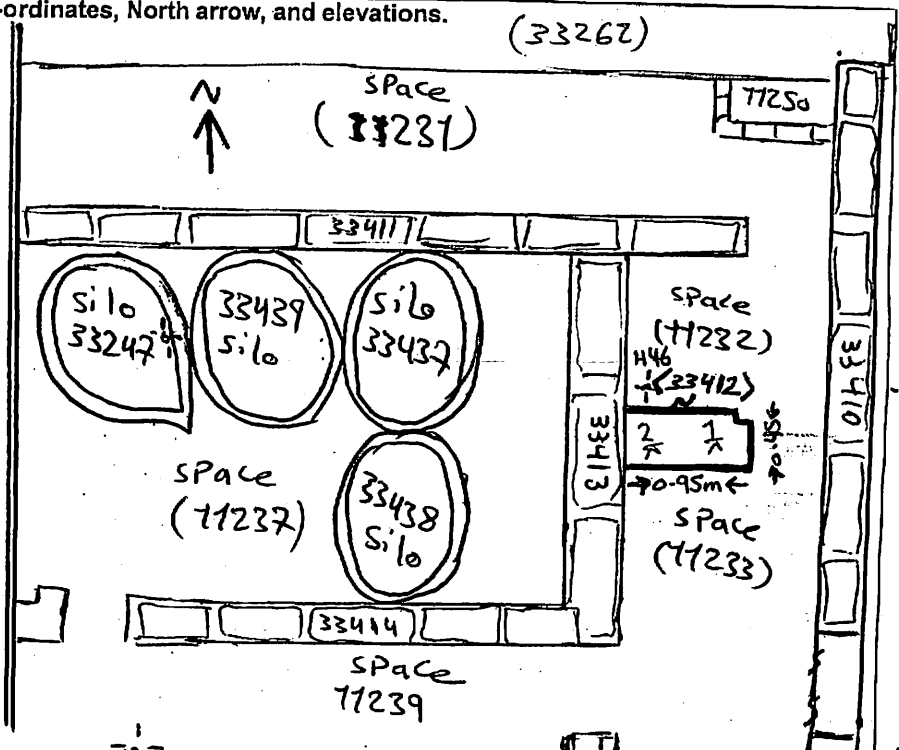 -ordinates, North arrow, and elevations.
(33262)
SPace
(11231)
11250
N
33411
Silo
33247
33439
Silo
Silo
33437
SPace
(11232)
H46
(33412)
33410
33413
2
1
0.45
0.95m
SPace
(11237)
33438
Silo
SPace
(11233)
33414
SPace
11239